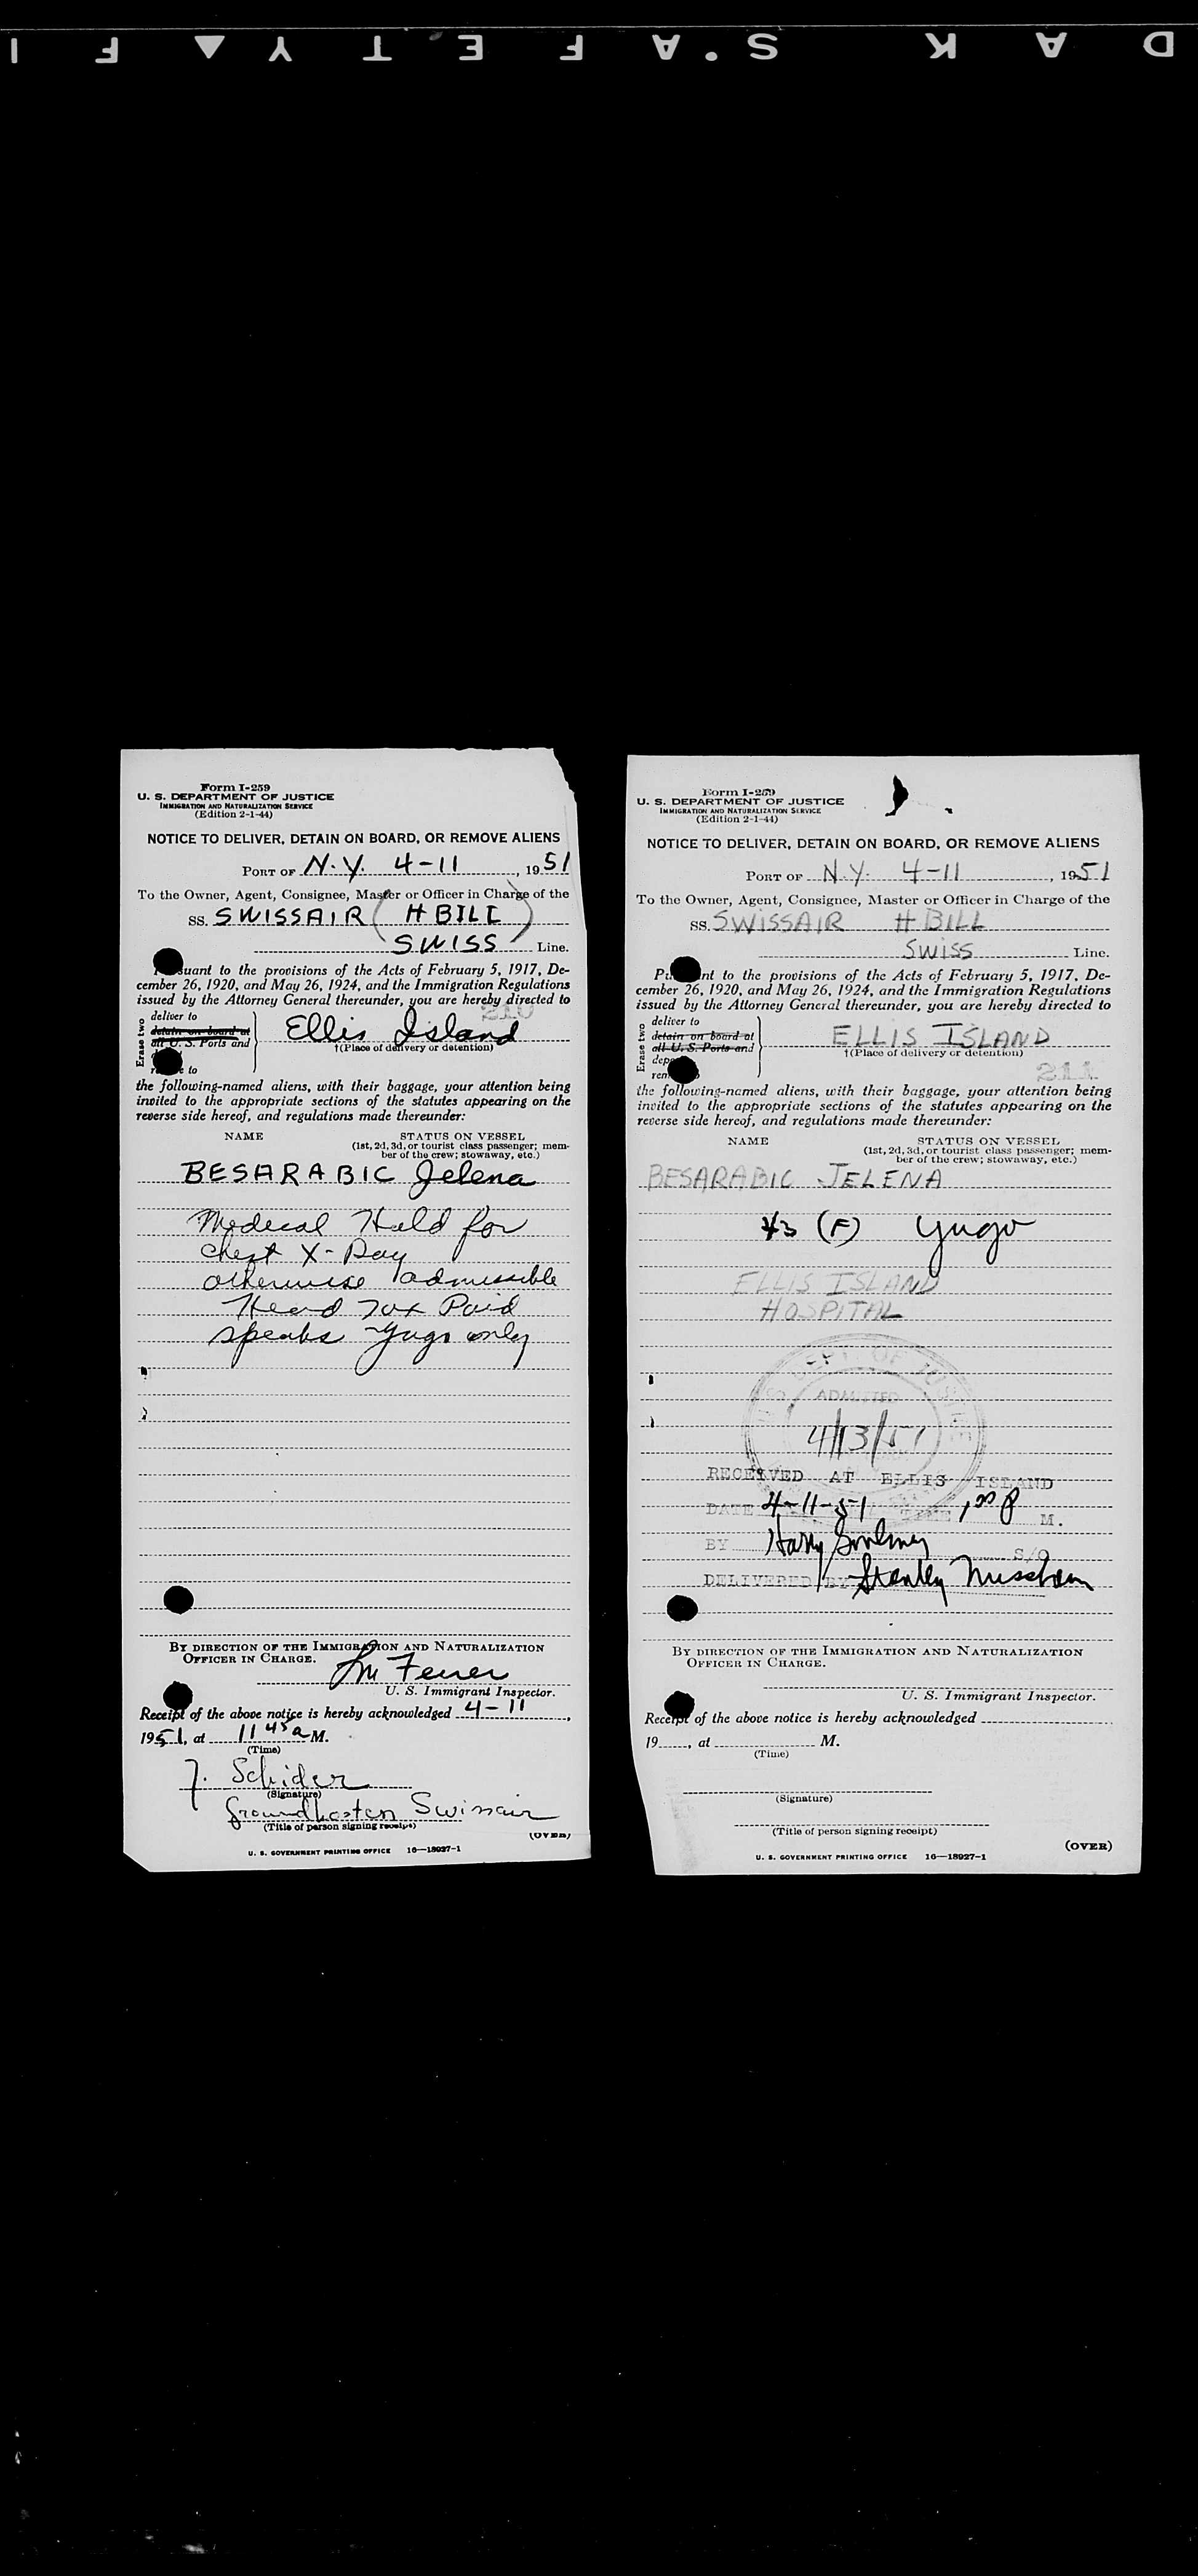 Form I-259
U. S. DEPARTMENT OF JUSTICE
IMMIGRATION AND NATURALIZATION SERVICE
(Edition 2-1-44)
NOTICE TO DELIVER, DETAIN ON BOARD, OR REMOVE ALIENS
PORT OF N.Y. 4-11, 1951
To the Owner, Agent, Consignee, Master or Officer in Charge of the
SS. SWISSAIR (H BILL)
SWISS Line.
suant to the provisions of the Acts of February 5, 1917, De-
cember 26, 1920, and May 26, 1924, and the Immigration Regulations
issued by the Attorney General thereunder, you are hereby directed to
210
Erase two
deliver to
detain on board at
all U. S. Ports and
to
Ellis Island
†(Place of delivery or detention)
the following-named aliens, with their baggage, your attention being
invited to the appropriate sections of the statutes appearing on the
reverse side hereof, and regulations made thereunder:
NAME STATUS ON VESSEL
(1st, 2d, 3d, or tourist class passenger; mem-
ber of the crew; stowaway, etc.)
BESARABIC Jelena
Medical Hold for
chest X-Ray
otherwise admissible
Head Tax Paid
speaks Yugo only
BY DIRECTION OF THE IMMIGRATION AND NATURALIZATION
OFFICER IN CHARGE.
U. S. Immigrant Inspector.
Receipt of the above notice is hereby acknowledged 4-11,
1951, at 11 45 a M.
(Time)
J. Schider
(Signature)
Groundhostess Swissair
(Title of person signing receipt)
(OVER)
U. S. GOVERNMENT PRINTING OFFICE 16—18927-1
Form I-259
U. S. DEPARTMENT OF JUSTICE
IMMIGRATION AND NATURALIZATION SERVICE
(Edition 2-1-44)
NOTICE TO DELIVER, DETAIN ON BOARD, OR REMOVE ALIENS
PORT OF N.Y. 4-11, 1951
To the Owner, Agent, Consignee, Master or Officer in Charge of the
SS. SWISSAIR H BILL
SWISS Line.
Pu nt to the provisions of the Acts of February 5, 1917, De-
cember 26, 1920, and May 26, 1924, and the Immigration Regulations
issued by the Attorney General thereunder, you are hereby directed to
Erase two
deliver to
detain on board at
all U. S. Ports and
ELLIS ISLAND
†(Place of delivery or detention)
211
the following-named aliens, with their baggage, your attention being
invited to the appropriate sections of the statutes appearing on the
reverse side hereof, and regulations made thereunder:
NAME STATUS ON VESSEL
(1st, 2d, 3d, or tourist class passenger; mem-
ber of the crew; stowaway, etc.)
BESARABIC JELENA
43 (F) Yugo
ELLIS ISLAND
HOSPITAL
ADMITTED
4/13/51
RECEIVED AT ELLIS ISLAND
DATE 4-11-51 TIME 1 00 P M.
BY Harry S/O
DELIVERED BY Stanley
BY DIRECTION OF THE IMMIGRATION AND NATURALIZATION
OFFICER IN CHARGE.
U. S. Immigrant Inspector.
Receipt of the above notice is hereby acknowledged
19, at M.
(Time)
(Signature)
(Title of person signing receipt)
(OVER)
U. S. GOVERNMENT PRINTING OFFICE 16—18927-1